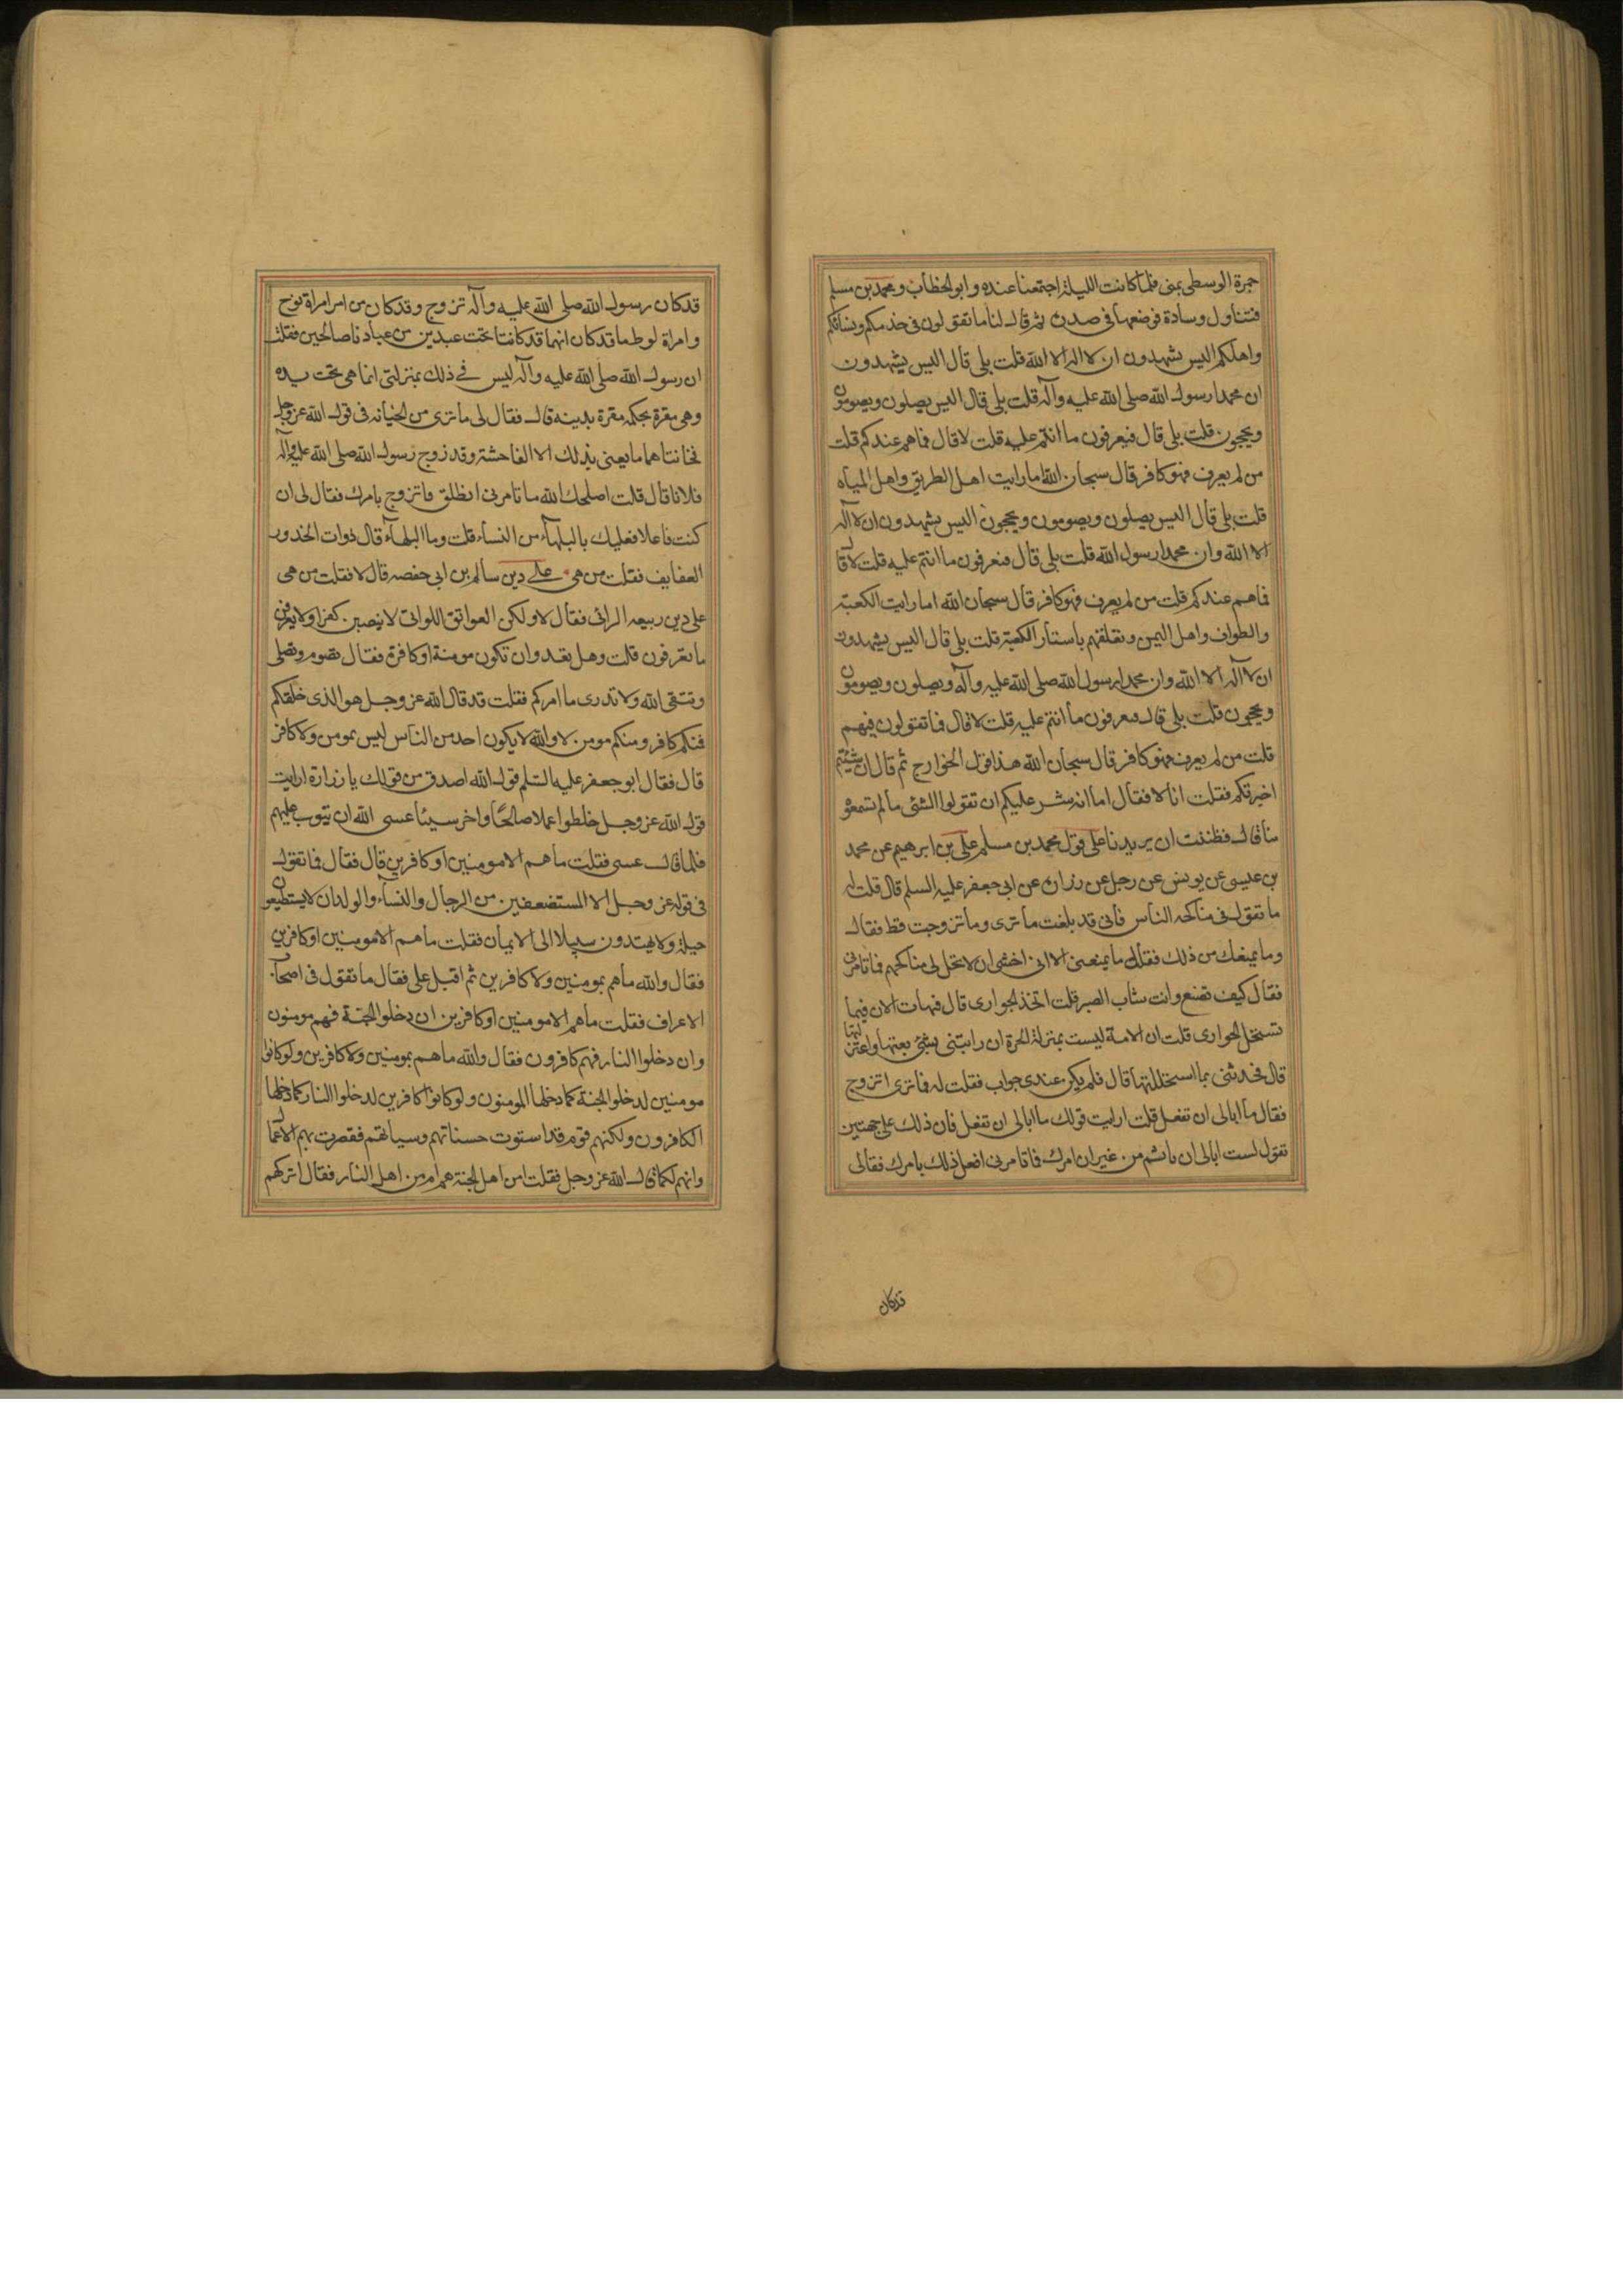 جمرة الوسطى بمنى فلما كانت الليلة اجتمعنا عنده وابو الخطاب ومحمد بن مسلم
فتناول وسادة فوضعها في صدره ثم قال لنا ما تقولون في خدمكم ونسائكم
واهلكم اليس يشهدون ان لا اله الا الله قلت بلى قال اليس يشهدون
ان محمدا رسول الله صلى الله عليه وآله قلت بلى قال اليس يصلون ويصومون
ويحجون قلت بلى قال فيعرفون ما انتم عليه قلت لا قال فما هم عندكم قلت
من لم يعرف فهو كافر قال سبحان الله اما رايت اهل الطريق واهل المياه
قلت بلى قال اليس يصلون ويصومون ويحجون اليس يشهدون ان لا آله
الا الله وان محمدا رسول الله قلت بلى قال فيعرفون ما انتم عليه قلت لا قال
فما هم عندكم قلت من لم يعرف فهو كافر قال سبحان الله اما رايت الكعبة
والطواف واهل اليمن وتعلقهم باستار الكعبة قلت بلى قال اليس يشهدون
ان لا آله الا الله وان محمدا رسول الله صلى الله عليه وآله ويصلون ويصومون
ويحجون قلت بلى قال فيعرفون ما انتم عليه قلت لا قال فما تقولون فيهم
قلت من لم يعرف فهو كافر قال سبحان الله هذا قول الخوارج ثم قال ان شئتم
اخبرتكم فقلت انا لا فقال اما انه شر عليكم ان تقولوا الشئ ما لم تسمعوه
منا قال فظننت ان يريدنا على قول محمد بن مسلم على بن ابرهيم عن محمد
بن عيسى عن يونس عن رجل عن زرارة عن ابي جعفر عليه السلم قال قلت له
ما تقول في مناكحة الناس فأنى قد بلغت ما ترى وما تزوجت قط فقال
وما يمنعك من ذلك فقلت ما يمنعنى الا انى اخشى ان لا تحل لى مناكحتهم فما تامرنى
فقال كيف تصنع وانت شاب اتصبر قلت اتخذ الجوارى قال فهات الان فبما
تستحل الجوارى قلت ان الامة ليست بمنزلة الحرة ان رابتنى بشئ بعتها واعتزلتها
قال فحدثنى بما استحللتها قال فلم يكن عندى جواب فقلت له فما ترى اتزوج
فقال ما ابالى ان تفعل قلت ارايت قولك ما ابالى ان تفعل فان ذلك على جهتين
تقول لست ابالى ان تأثم من غير ان امرك فما تامرنى افعل ذلك بامرك فقال لى
قد كان
قد كان رسول الله صلى الله عليه وآله تزوج وقد كان من امر امراة نوح
وامراة لوط ما قد كان انهما قد كانتا تحت عبدين من عبادنا صالحين فقلت
ان رسول الله صلى الله عليه وآله ليس في ذلك بمنزلتى انما هى تحت يده
وهى مقرة بحكمه مقرة بدينه قال فقال لى ما ترى من الخيانه في قول الله عز وجل
فخانتاهما ما يعنى بذلك الا الفاحشة وقد زوج رسول الله صلى الله عليه وآله
فلانا قال قلت اصلحك الله ما تامرنى انطلق فاتزوج بامرك فقال لى ان
كنت فاعلا فعليك بالبلهاء من النساء قلت وما البلهاء قال ذوات الخدور
العفايف فقلت من هى على دين سالم بن ابي حفصه قال لا فقلت من هى
على دين ربيعه الرائى فقال لا ولكن العواتق اللواتى لا ينصبن كفرا ولا يعرفن
ما تعرفون قلت وهل تعدو ان تكون مومنة او كافرة فقال تصوم وتصلى
وتتقى الله ولا تدرى ما امركم فقلت قد قال الله عز وجل هو الذى خلقكم
فمنكم كافر ومنكم مومن لا والله لا يكون احد من الناس ليس بمومن ولا كافر
قال فقال ابو جعفر عليه السلم قول الله اصدق من قولك يا زرارة ارايت
قول الله عز وجل خلطوا عملا صالحا واخر سيئا عسى الله ان يتوب عليهم
فلما قال عسى فقلت ما هم الا مومنين او كافرين قال فقال فما تقول
في قوله عز وجل الا المستضعفين من الرجال والنساء والولدان لا يستطيعون
حيلة ولا يهتدون سبيلا الى الايمان فقلت ما هم الا مومنين او كافرين
فقال والله ما هم بمومنين ولا كافرين ثم اقبل على فقال ما تقول في اصحاب
الاعراف فقلت ما هم الا مومنين او كافرين ان دخلوا الجنة فهم مومنون
وان دخلوا النار فهم كافرون فقال والله ما هم بمومنين ولا كافرين ولو كانوا
مومنين لدخلوا الجنة كما دخلها المومنون ولو كانوا كافرين لدخلوا النار كما دخلها
الكافرون ولكنهم قوم قد استوت حسناتهم وسيئاتهم فقصرت بهم الاعمال
وانهم لكما قال الله عز وجل فقلت امن اهل الجنة هم ام من اهل النار فقال اتركهم